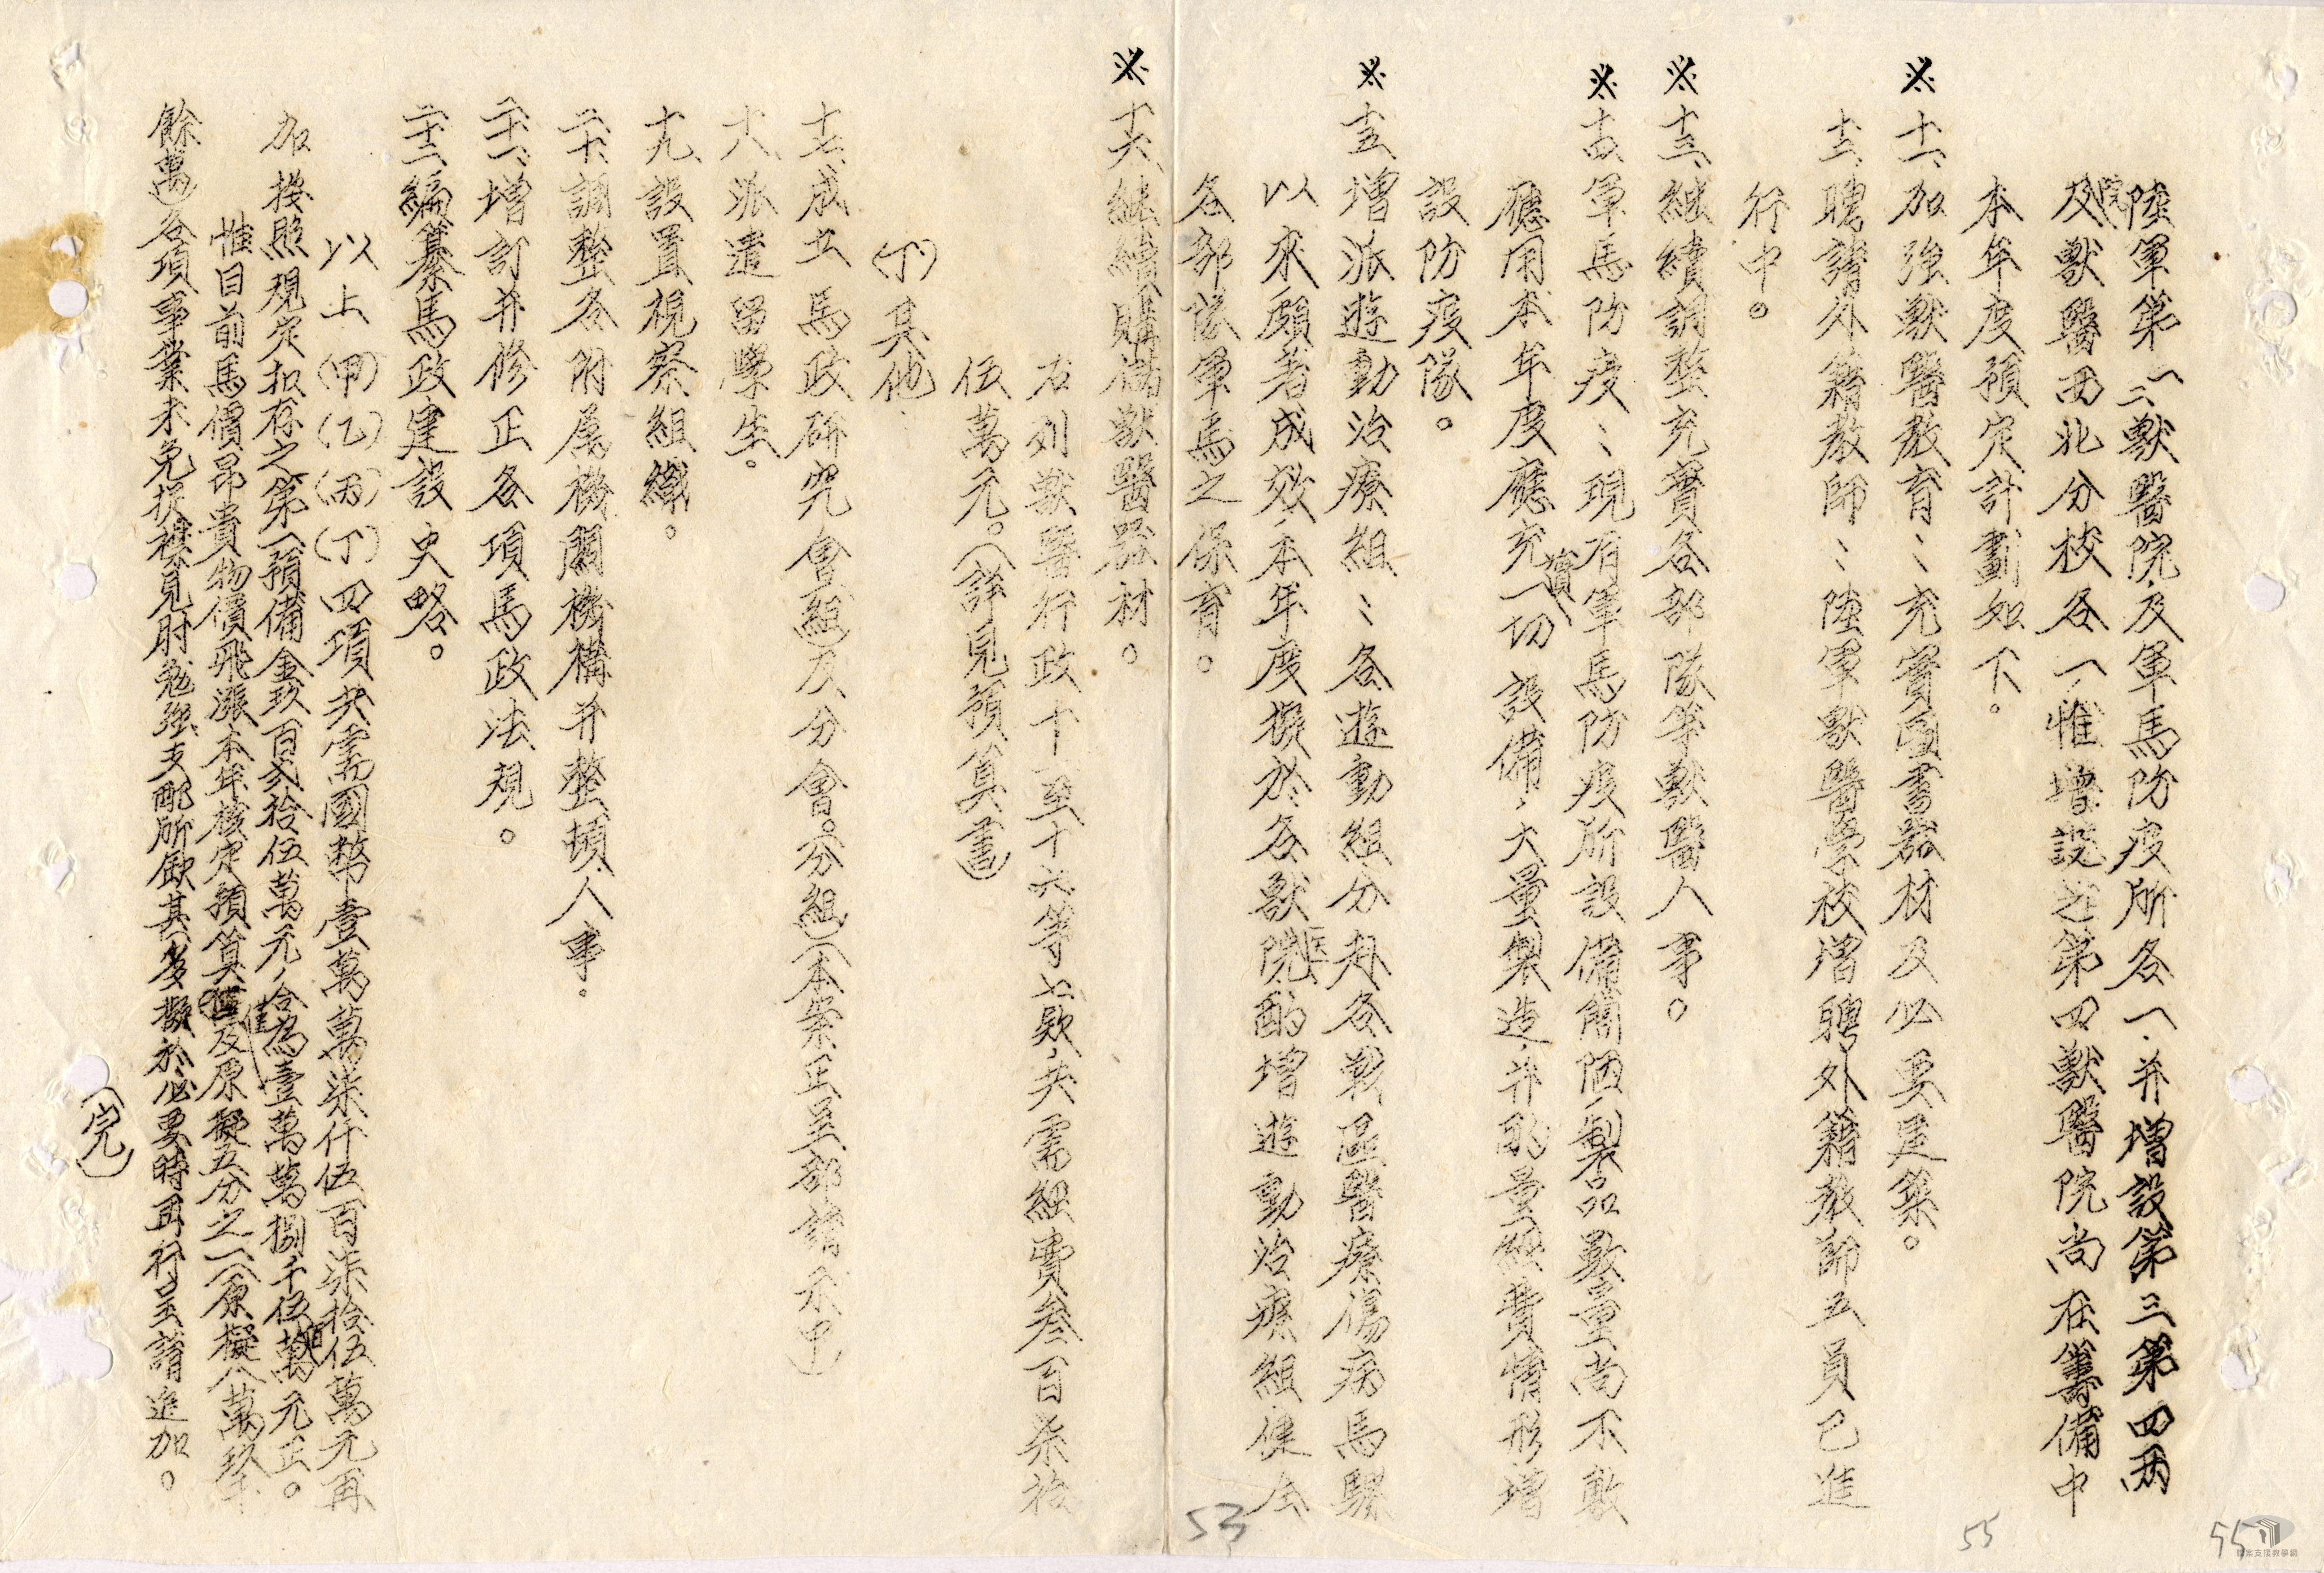 陸軍第一二獸醫院及軍馬防疫所各一、并增設第三第四兩
院及獸醫西北分校各一、惟增設之第四獸醫院尚在籌備中
本年度預定計劃如下。
※十一、加強獸醫教育：充實圖書器材及必要建築。
十二、聘請外籍教師：陸軍獸醫學校增聘外籍教師五員已進
行中。
※十三、繼續調整充實各部隊等獸醫人事。
※十四、軍馬防疫：現有軍馬防疫所設備簡陋、製品數量尚不敷
應用本年度應充實一切設備、大量製造、并酌量經費情形增
設防疫隊。
※十五、增派遊動治療組：各遊動組分赴各戰區醫療傷病馬騾
以來、頗著成效、本年度擬於各獸醫院酌增遊動治療組健全
各部隊軍馬之保育。
※十六、繼續購儲獸醫器材。
右列獸醫行政十一至十六等七款、共需經費叁百柒拾
伍萬元。（詳見預算書）
（丁）其他：
十七、成立馬政研究會（組）及分會。（分組）（本案正呈部請示中）
十八、派遣留學生。
十九、設置視察組織。
二十、調整各附屬機關機構并整頓人事。
二十一、增訂并修正各項馬政法規。
二十二、編纂馬政建設史略。
以上（甲）（乙）（丙）（丁）四項共需國幣壹萬萬柒仟伍百柒拾伍萬元再
加按照規定扣存之第一預備金玖百貳拾伍萬元、合為壹萬萬捌千伍百萬元正。
惟目前馬價昂貴物價飛漲本年核定預算僅及原擬五分之一（原擬八萬玖千
餘萬）各項事業未免捉襟見肘勉強支配所缺甚多擬於必要時再行呈請追加。
（完）
53
55
55
檔案支援教學網